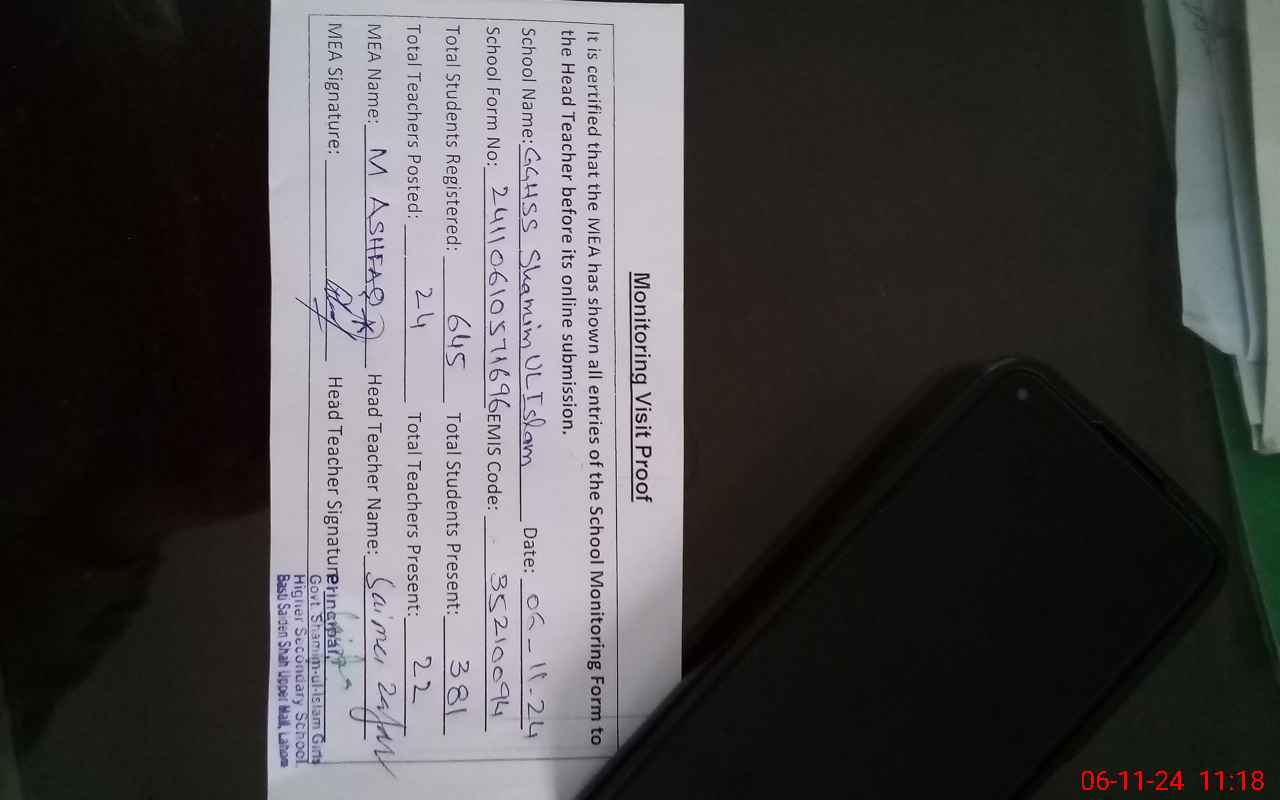 Monitoring Visit Proof
It is certified that the MEA has shown all entries of the School Monitoring Form to
the Head Teacher before its online submission.
School Name: GGHSS Shamim UL Islam Date: 06-11-24
School Form No: 24110610571696 EMIS Code: 35210094
Total Students Registered: 645 Total Students Present: 381
Total Teachers Posted: 24 Total Teachers Present: 22
MEA Name: M ASHFAQ Head Teacher Name: Saima Zafar
MEA Signature: Head Teacher Signature
Principal
Govt. Shamim-ul-Islam Girls
Higher Secondary School
Basti Saiden Shah Upper Mall, Lahore
06-11-24 11:18